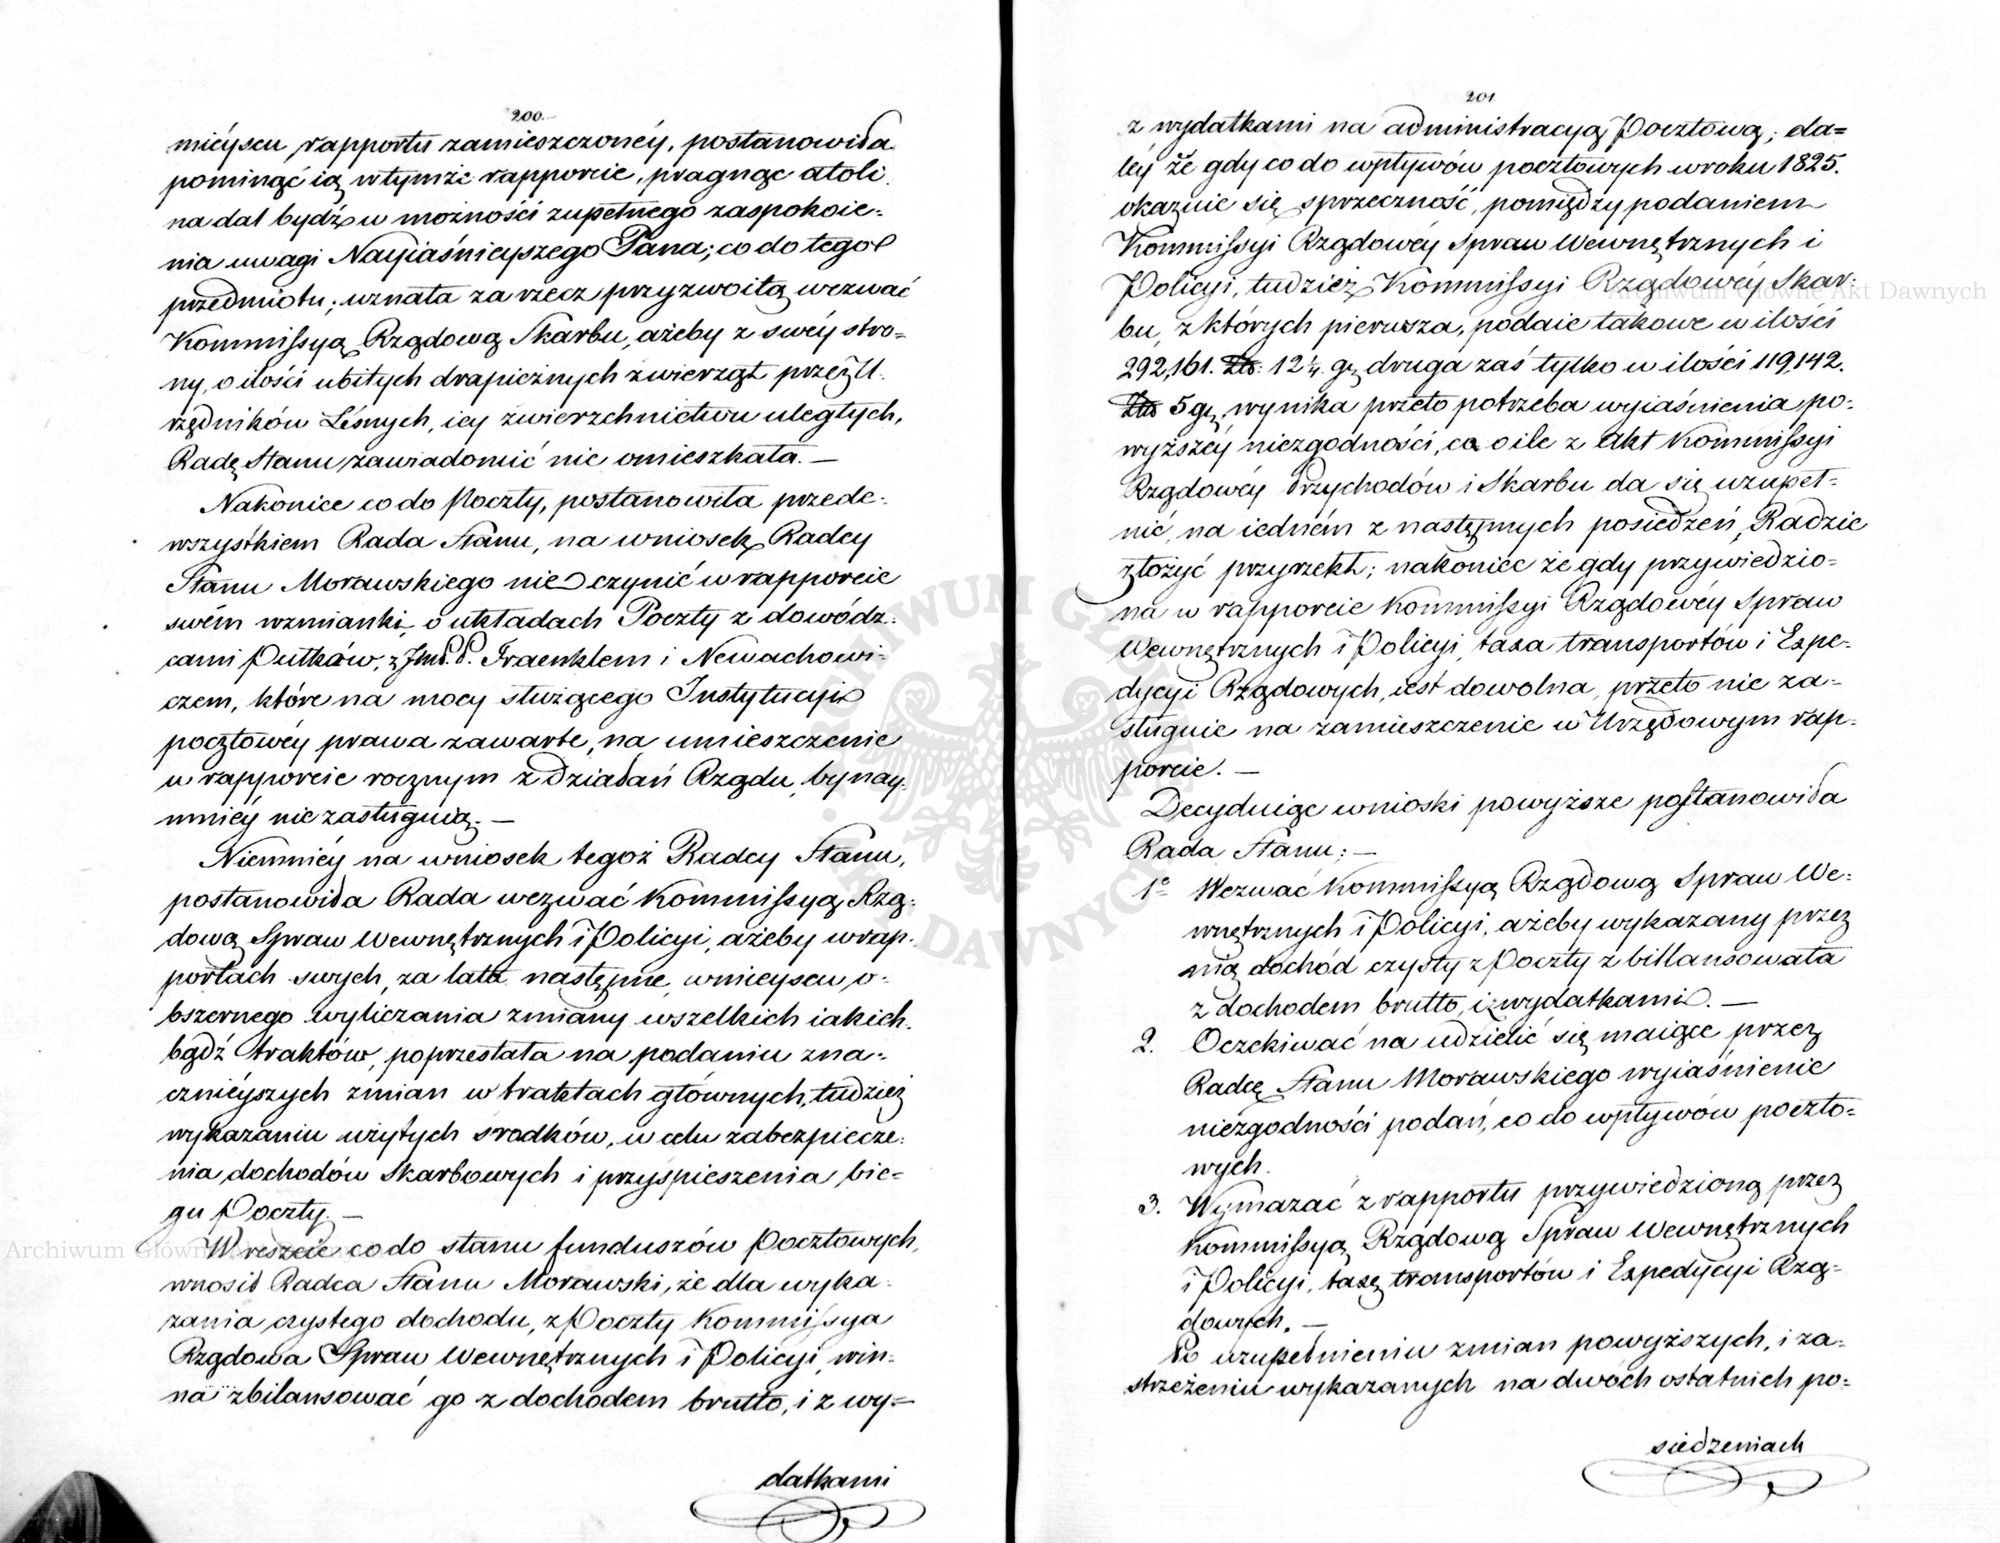 200.
mieyscu rapportu zamieszczoney, postanowiła
pominąć ią w tymże rapporcie, pragnąc atoli
nadal bydź w możności zupełnego zaspokoie-
nia uwagi Nayiaśnieyszego Pana; co do tego
przedmiotu; uznała za rzecz przyzwoitą wezwać
Kommissyą Rządową Skarbu, ażeby z swéy stro-
ny, o ilości ubitych drapieżnych zwierząt przez U-
rzędników Leśnych, iey zwierzchnictwu uległych,
Radę Stanu zawiadomić nie omieszkała. —
Nakoniec co do Poczty, postanowiła przede-
wszystkiem Rada Stanu, na wniosek Radcy
Stanu Morawskiego nie czynić w rapporcie
swém wzmianki o układach Poczty z dowódz-
cami Pułków, z JmP.P. Fraenklem i Newachowi-
czem, które na mocy służącego Instytucyi
pocztowéy prawa zawarte, na umieszczenie
w rapporcie rocznym z działań Rządu, bynay-
mniéy nie zasługuią. —
Niemniéy na wniosek tegoż Radcy Stanu,
postanowiła Rada wezwać Kommissyą Rzą-
dową Spraw Wewnętrznych i Policyi, ażeby w rap-
portach swych, za lata następne, w mieyscu o-
bszernego wyliczania zmiany wszelkich iakich-
bądź traktów, poprzestała na podaniu zna-
cznieyszych zmian w traktach głównych, tudzież
wykazaniu użytych środków, w celu zabezpiecze-
nia dochodów Skarbowych i przyśpieszenia bie-
gu Poczty. —
Wreszcie co do stanu funduszów Pocztowych,
wnosił Radca Stanu Morawski, że dla wyka-
zania czystego dochodu, z Poczty Kommissya
Rządowa Spraw Wewnętrznych i Policyi, win-
na zbilansować go z dochodem brutto, i z wy=
datkami
201
z wydatkami na administracyą Pocztową; da=
léy że gdy co do wpływów pocztowych w roku 1825.
okazuie się sprzeczność, pomiędzy podaniem
Kommissyi Rządowéy Spraw Wewnętrznych i
Policyi, tudzież Kommissyi Rządowéy Skar-
bu, z których pierwsza, podaie takowe w ilości
292,161. Złt: 12¼. gr, druga zaś tylko w ilości 119,142.
Złt 5 gr, wynika przeto potrzeba wyiaśnienia po-
wyższéy niezgodności, co o ile z Akt Kommissyi
Rządowéy Przychodów i Skarbu da się uzupeł-
nić, na iedném z następnych posiedzeń, Radzie
złożyć przyrzekł; nakoniec że gdy przywiedzio-
na w rapporcie Kommissyi Rządowéy Spraw
Wewnętrznych i Policyi, taxa transportów i Expe-
dycyi Rządowych, iest dowolna, przeto nie za-
sługuie na zamieszczenie w Urzędowym rap-
porcie. —
Decyduiąc wnioski powyższe postanowiła
Rada Stanu: —
1º Wezwać Kommissyą Rządową Spraw We-
wnętrznych i Policyi, ażeby wykazany przez
nią dochód czysty z Poczty zbillansowała
z dochodem brutto, i z wydatkami. —
2. Oczekiwać na udzielić się maiące przez
Radcę Stanu Morawskiego wyiaśnienie
niezgodności podań, co do wpływów poczto-
wych.
3. Wymazać z rapportu przywiedzioną przez
Kommissyą Rządową Spraw Wewnętrznych
i Policyi, taxę transportów i Expedycyi Rzą-
dowych. —
Po uzupełnieniu zmian powyższych, i za-
strzeżeniu wykazanych na dwóch ostatnich po-
siedzeniach
Archiwum Główne Akt Dawnych